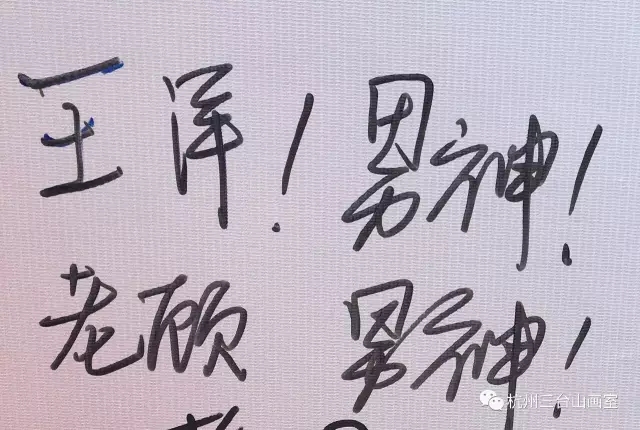 王洋！男神！
老顾 男神！
杭州三台山画室